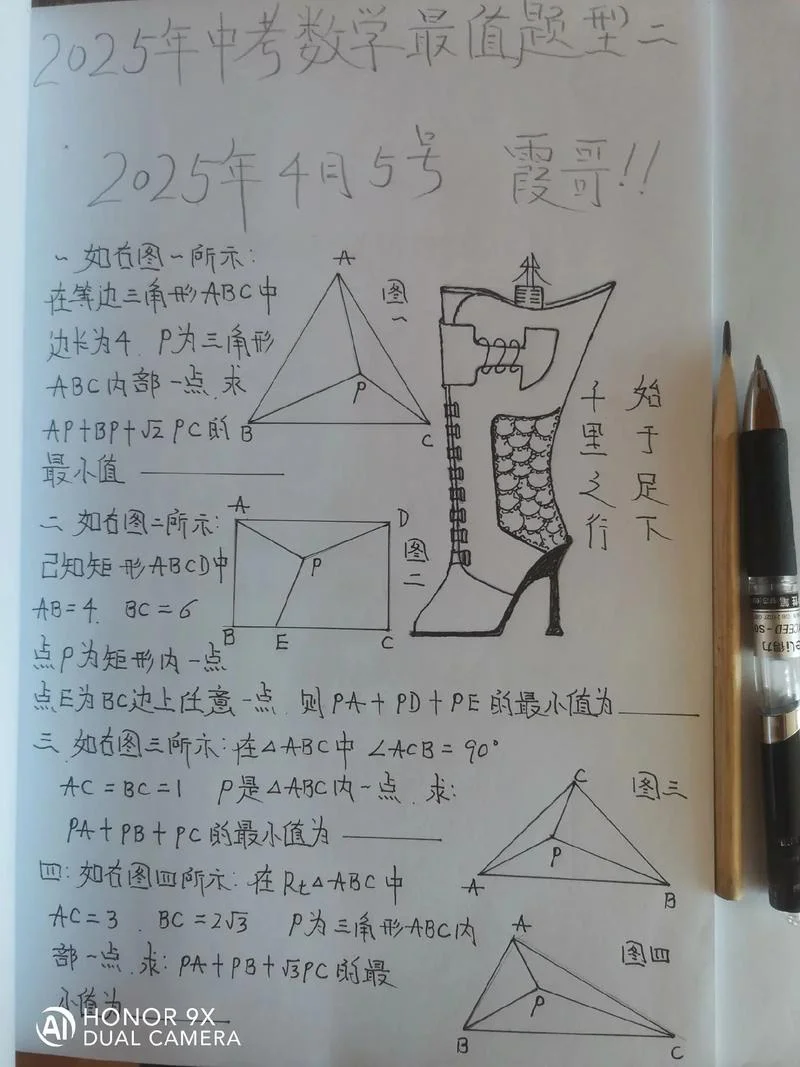 2025年中考数学最值题型二
2025年4月5号 霞哥!!
一 如右图一所示:
在等边三角形ABC中
边长为4. P为三角形
ABC内部一点.求
AP+BP+√2 PC的
最小值
A
图一
P
B
C
始于足下
千里之行
二 如右图二所示:
已知矩形ABCD中
AB=4. BC=6
点P为矩形内一点
点E为BC边上任意一点.则PA+PD+PE的最小值为
A
D
图二
P
B
E
C
三.如右图三所示:在△ABC中 ∠ACB=90°
AC=BC=1 P是△ABC内一点.求:
PA+PB+PC的最小值为
C
图三
P
A
B
四:如右图四所示:在Rt△ABC中
AC=3 . BC=2√3 P为三角形ABC内
部一点.求:PA+PB+√3PC的最
小值为
A
图四
P
B
C
HONOR 9X
AI DUAL CAMERA
得力